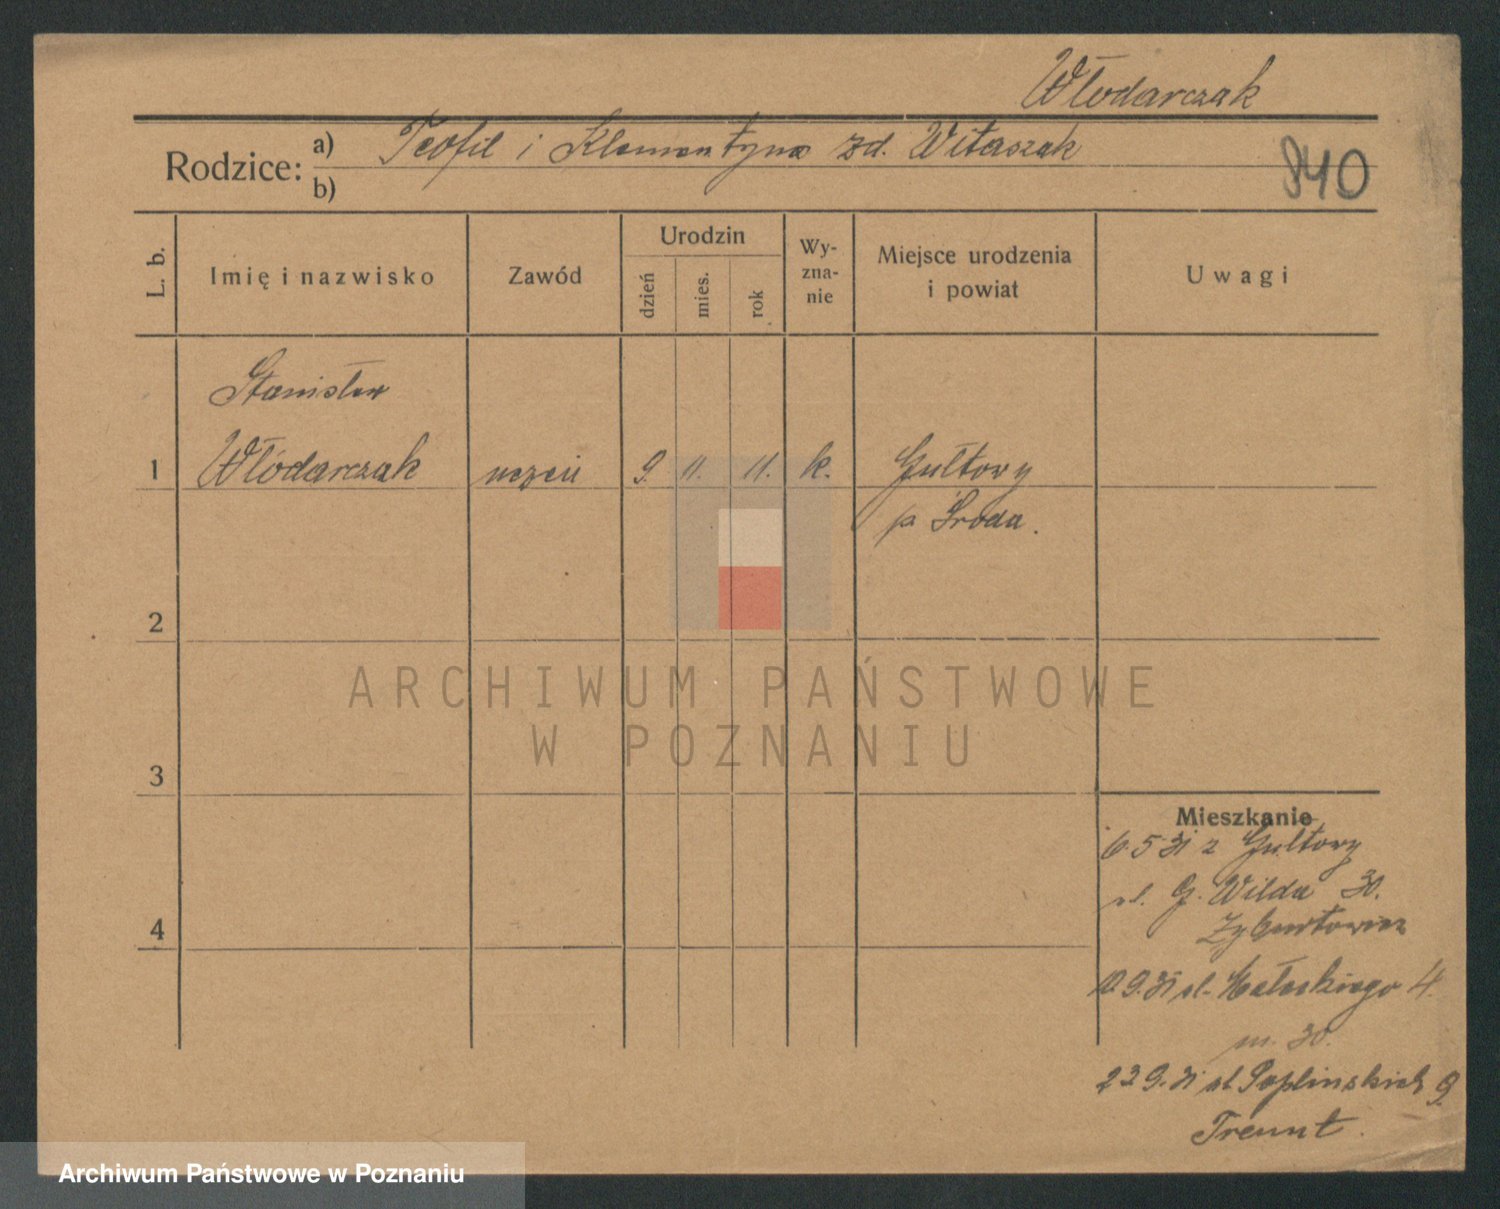 Włodarczak
Rodzice: a) Teofil i Klementyna zd. Witaszak
b)
840
L. b.
Imię i nazwisko
Zawód
Urodzin
dzień
mies.
rok
Wy-
zna-
nie
Miejsce urodzenia
i powiat
Uwagi
Stanisław
1 Włódarczak uczeń 9. 11. 11. k. Gułtowy
p Środa.
2
3
4
Mieszkanie
6.5.31 z Gułtowy
ul. G. Wilda 30.
10.9.31 ul. Małeckiego 4.
m. 30.
22.9.31 ul. Poplinskich 9.
ARCHIWUM PAŃSTWOWE
W POZNANIU
Archiwum Państwowe w Poznaniu